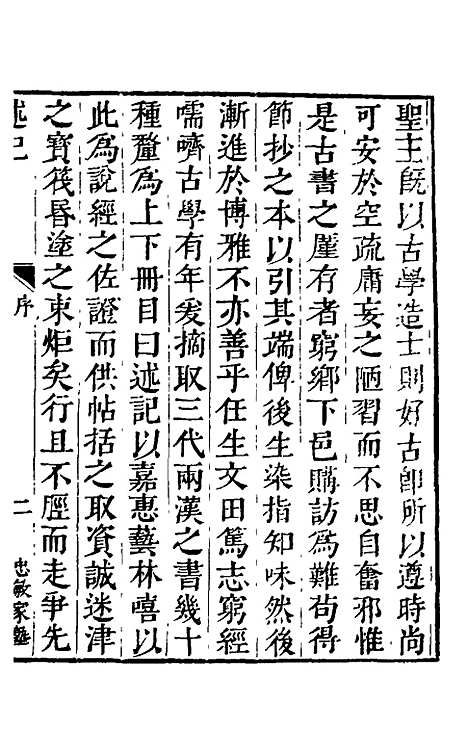 聖主既以古學造士則好古卽所以遵時尚
可安於空疏庸妄之陋習而不思自奮邪惟
是古書之廑有者窮鄉下邑購訪為難茍得
節抄之本以引其端俾後生染指知味然後
漸進於博雅不亦善乎任生文田篤志窮經
嚅嚌古學有年爰摘取三代兩漢之書幾十
種釐為上下冊目曰述記以嘉惠藝林嘻以
此為說經之佐證而供帖括之取資誠迷津
之寶筏昏塗之束炬矣行且不脛而走爭先
述記
序
二
忠敏家塾